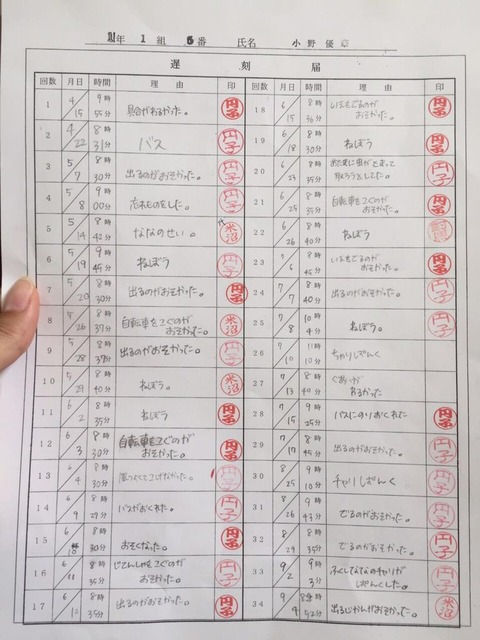 年 1 組 6番 氏名 小野優章
遅刻届
回数 月日 時間 理由 印
1 4/15 9時55分 具合がわるかった。 円子
2 4/22 8時31分 バス 円子
3 5/7 8時30分 出るのがおそかった。 円子
4 5/8 9時00分 忘れものをした。 円子
5 5/14 8時42分 ななのせい。 米沼
6 5/19 9時45分 ねぼう 円子
7 5/20 8時30分 出るのがおそかった。 円子
8 5/26 8時37分 自転車をこぐのがおそかった。 米沼
9 5/28 8時分 出るのがおそかった。 円子
10 5/29 8時40分 ねぼう。 米沼
11 6/2 8時35分 ねぼう 円子
12 6/3 8時30分 自転車をこぐのがおそかった。 円子
13 6/4 8時30分 円子
14 6/9 8時29分 バスがおくれた。 円子
15 6/ 8時30分 おそくなった。 円子
16 6/11 8時35分 じてんしゃをこぐのがおそかった。 円子
17 6/12 8時35分 出るのがおそかった。 円子
回数 月日 時間 理由 印
18 6/15 8時36分 いえをでるのがおそかった。 円子
19 6/18 8時30分 ねぼう 円子
20 6/23 8時35分 に虫がとまって取ろうとしてた。 円子
21 6/25 8時35分 自転車をこぐのがおそかった。 円子
22 6/26 8時40分 ねぼう
23 7/6 8時45分 いえをでるのがおそかった。 円子
24 7/7 8時40分 出るのがおそかった。 円子
25 7/8 10時4分 ねぼう。 円子
26 7/10 11時11分 ちゃりぱんく
27 7/13 8時40分 ぐあいがわるかった
28 7/15 9時25分 バスにのりおくれた 円子
29 7/17 8時45分 出るのがおそかった。 円子
30 8/25 9時10分 チャリぱんく 円子
31 8/26 8時43分 でるのがおそかった。 円子
32 8/29 8時35分 でるのがおそかった。 円子
33 9/2 9時3分 ふくしてななのチャリがぱんくした。 円子
34 9/4 8時52分 出るじかんがおそかった。 米沼